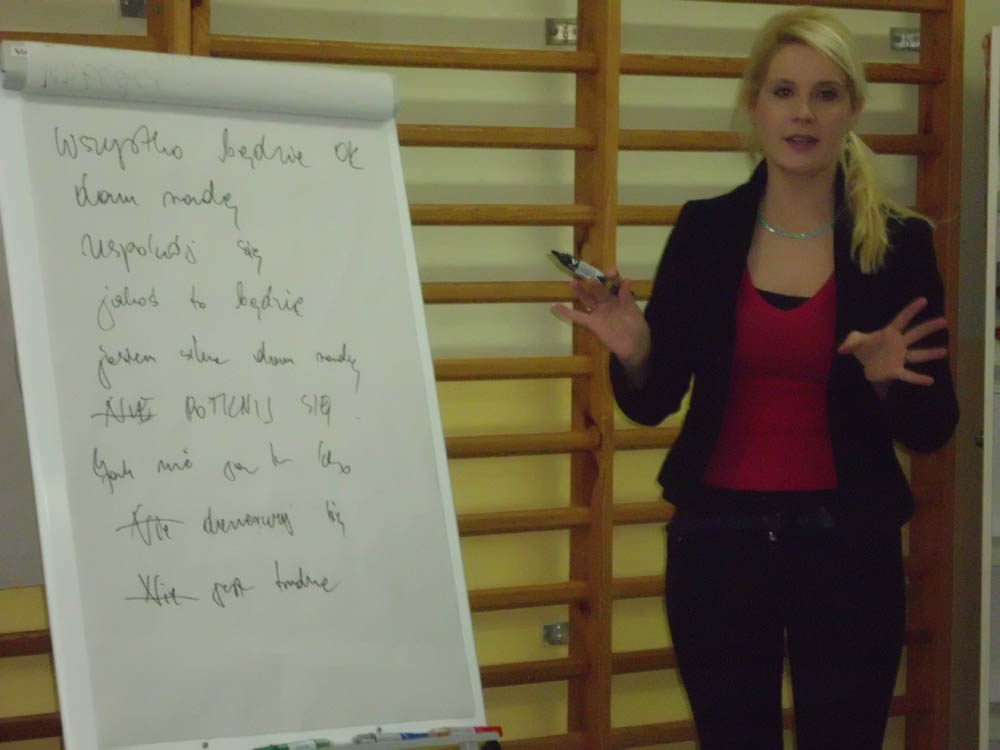 Wszystko będzie ok
dam radę
uspokój się
jakoś to będzie
jestem silna dam radę
Nie POTKNIJ SIĘ
jak nie ja to kto
Nie denerwuj się
Nie jest trudne